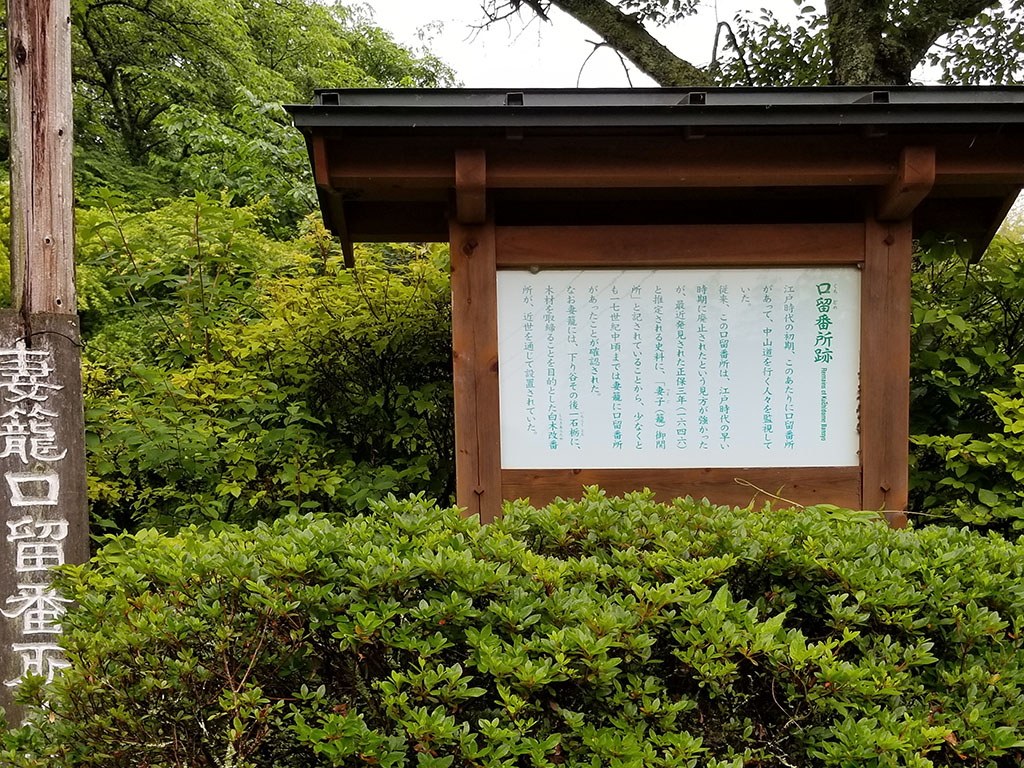 口留番所跡 Remains of Kuchidome Bansyo
江戸時代の初期、このあたりに口留番所
があって、中山道を行く人々を監視して
いた。
従来、この口留番所は、江戸時代の早い
時期に廃止されたという見方が強かった
が、最近発見された正保三年（一六四六）
と推定される史料に、「妻子（籠）御関
所」と記されていることから、少なくと
も一七世紀中頃までは妻籠に口留番所
があったことが確認された。
なお妻籠には、下り谷その後一石栃に、
木材を取締ることを目的とした白木改番
所が、近世を通じて設置されていた。
妻籠口留番所